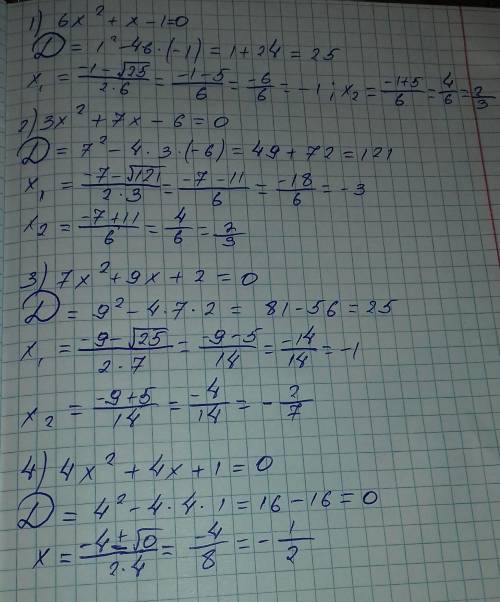 1) 6x² + x - 1 = 0
D = 1² - 46 · (-1) = 1 + 24 = 25
x₁ = (-1 - √25)/(2 · 6) = (-1 - 5)/6 = -6/6 = -1 ; x₂ = (-1 + 5)/6 = 4/6 = 2/3
2) 3x² + 7x - 6 = 0
D = 7² - 4 · 3 · (-6) = 49 + 72 = 121
x₁ = (-7 - √121)/(2 · 3) = (-7 - 11)/6 = -18/6 = -3
x₂ = (-7 + 11)/6 = 4/6 = 2/3
3) 7x² + 9x + 2 = 0
D = 9² - 4 · 7 · 2 = 81 - 56 = 25
x₁ = (-9 - √25)/(2 · 7) = (-9 - 5)/14 = -14/14 = -1
x₂ = (-9 + 5)/14 = -4/14 = -2/7
4) 4x² + 4x + 1 = 0
D = 4² - 4 · 4 · 1 = 16 - 16 = 0
x = (-4 ± √0)/(2 · 4) = -4/8 = -1/2